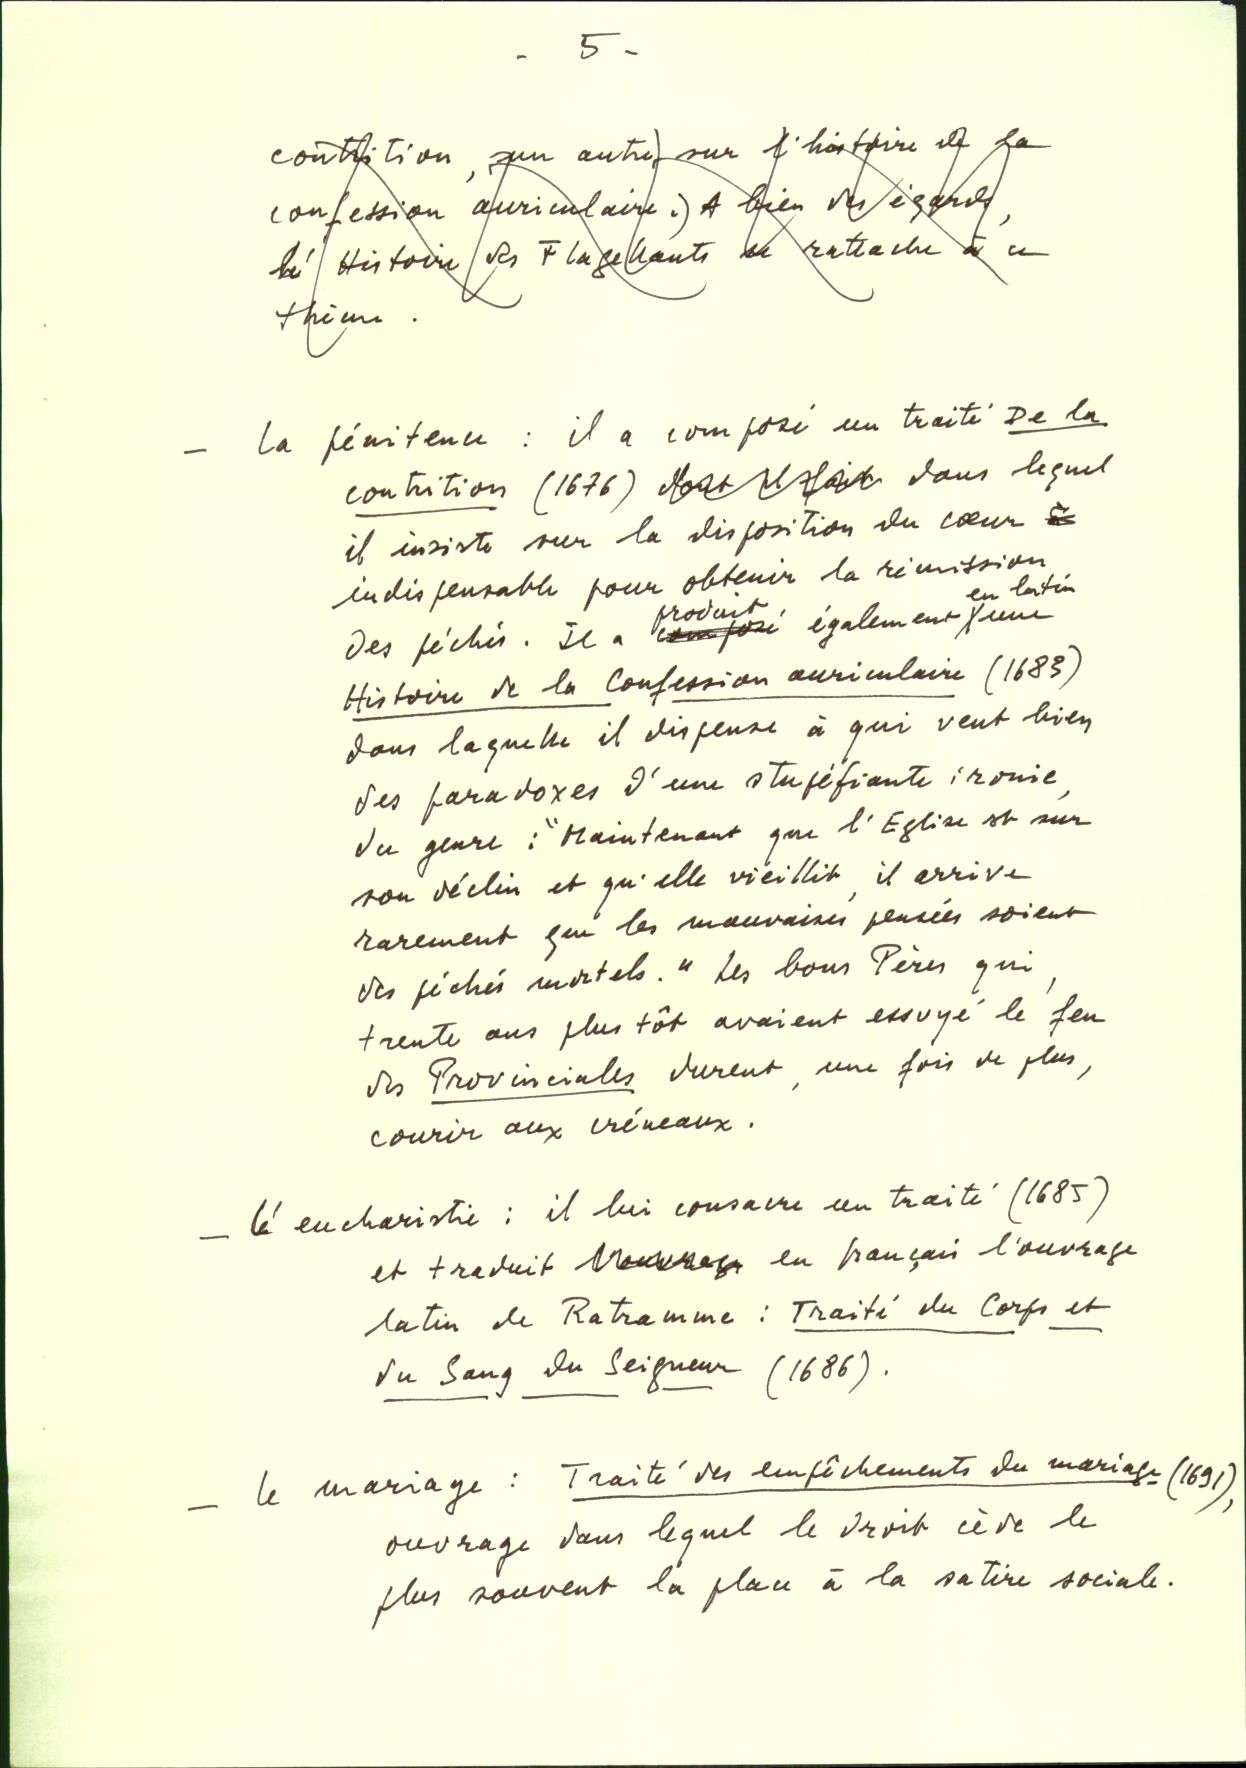 - 5 -
contrition, un autre sur l'histoire de la
confession auriculaire.) A bien des égards,
l'Histoire des Flagellants se rattache à ce
thème.
— La pénitence : il a composé un traité De la
contrition (1676) dont il fait dans lequel
il insiste sur la disposition du cœur
indispensable pour obtenir la rémission
en latin
produit
des péchés. Il a composé également une
Histoire de la Confession auriculaire (1683)
dans laquelle il dispense à qui veut bien
des paradoxes d'une stupéfiante ironie,
du genre : "Maintenant que l'Eglise est sur
son déclin et qu'elle vieillit, il arrive
rarement que les mauvaises pensées soient
des péchés mortels." Les bons Pères qui,
trente ans plus tôt avaient essuyé le feu
des Provinciales durent, une fois de plus,
courir aux créneaux.
— L'eucharistie : il lui consacre un traité (1685)
et traduit l'ouvrage en français l'ouvrage
latin de Ratramme : Traité du Corps et
du Sang du Seigneur (1686).
— Le mariage : Traité des empêchements du mariage (1691),
ouvrage dans lequel le droit cède le
plus souvent la place à la satire sociale.